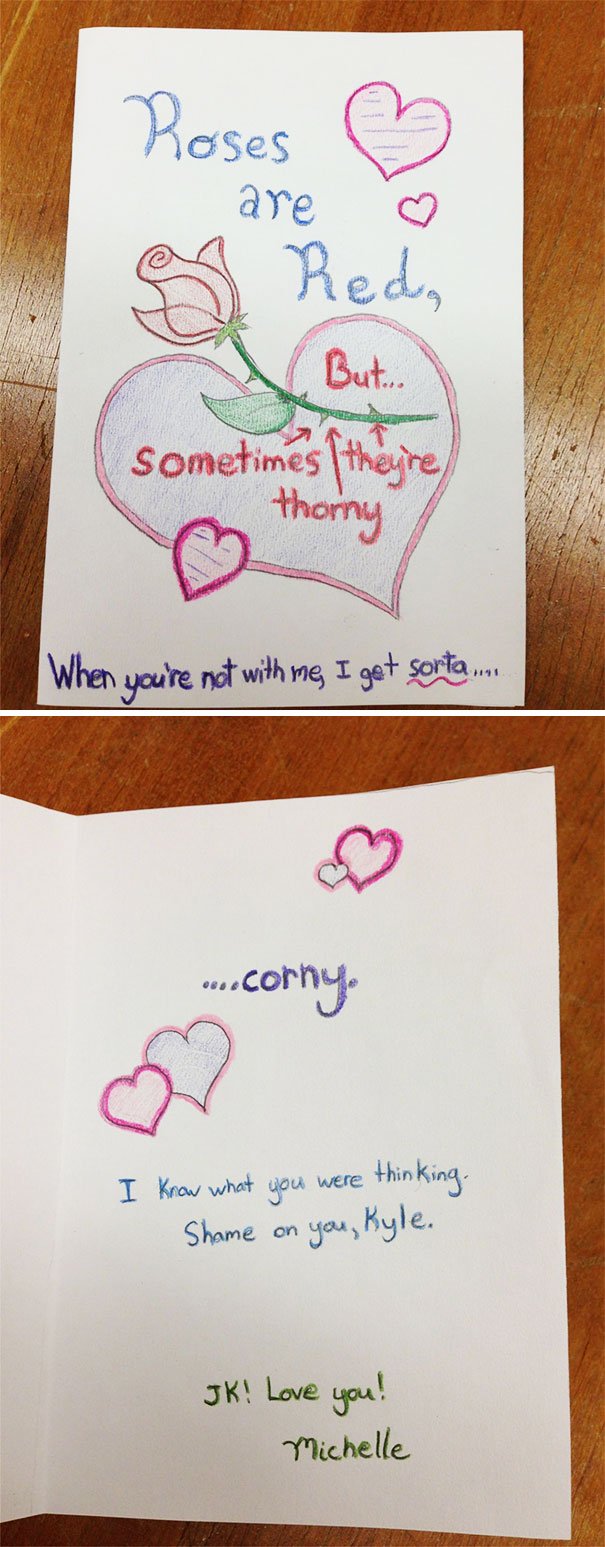 Roses
are
Red,
But...
sometimes they're
thorny
When you're not with me, I get sorta....
....corny.
I know what you were thinking.
Shame on you, Kyle.
JK! Love you!
Michelle